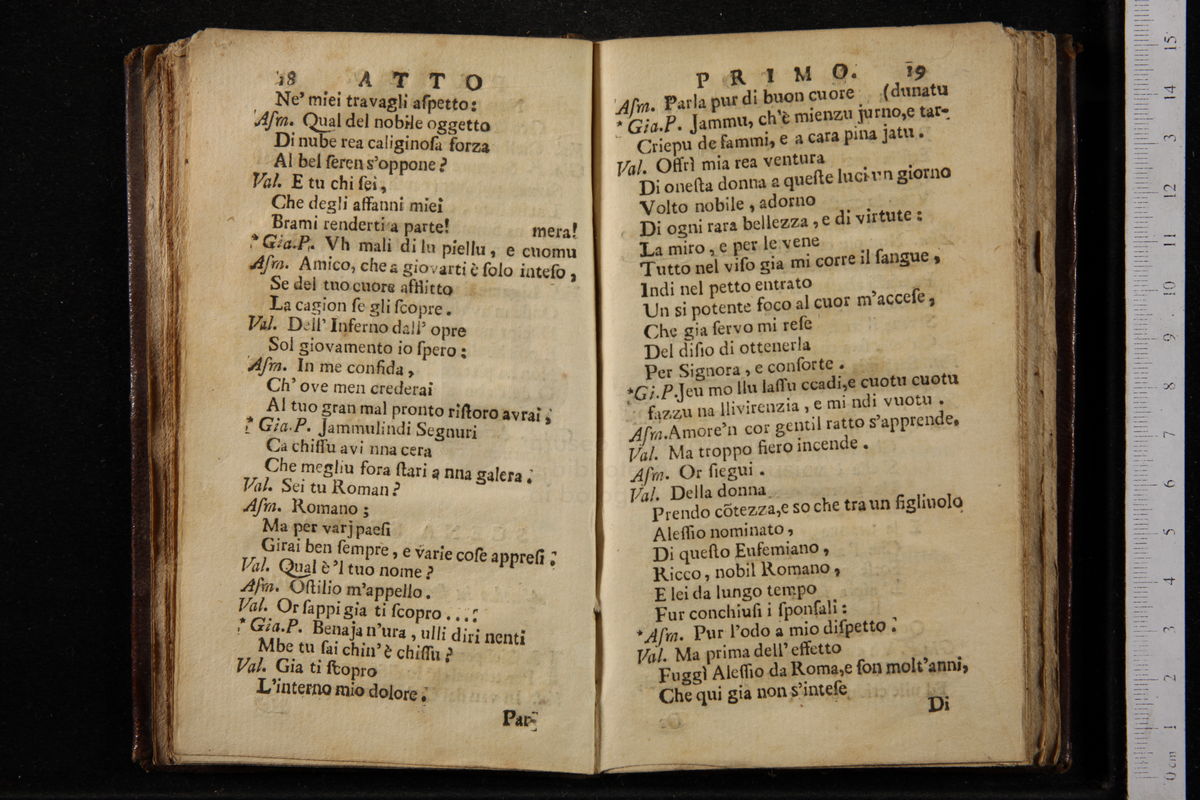 18 ATTO
Ne' miei travagli aſpetto:
Aſm. Qual del nobile oggetto
Di nube rea caliginoſa forza
Al bel ſeren s'oppone?
Val. E tu chi ſei,
Che degli affanni miei
Brami renderti a parte! mera!
* Gia.P. Vh mali di lu piellu, e cuomu
Aſm. Amico, che a giovarti è ſolo inteſo,
Se del tuo cuore afflitto
La cagion ſe gli ſcopre.
Val. Dell' Inferno dall' opre
Sol giovamento io ſpero:
Aſm. In me confida,
Ch' ove men crederai
Al tuo gran mal pronto riſtoro avrai;
* Gia.P. Jammulindi Segnuri
Ca chiſſu avi nna cera
Che megliu fora ſtari a nna galera.
Val. Sei tu Roman?
Aſm. Romano;
Ma per varj paeſi
Girai ben ſempre, e varie coſe appreſi:
Val. Qual è 'l tuo nome?
Aſm. Oſtilio m'appello.
Val. Or ſappi gia ti ſcopro ...:
* Gia.P. Benaja n'ura, ulli diri nenti
Mbe tu ſai chin' è chiſſu?
Val. Gia ti ſtopro
L'interno mio dolore.
Par-
PRIMO. 19
Aſm. Parla pur di buon cuore (dunatu
* Gia.P. Jammu, ch'è mienzu jurno,e tar-
Criepu de fammi, e a cara pina jatu.
Val. Offrì mia rea ventura
Di oneſta donna a queſte luci un giorno
Volto nobile, adorno
Di ogni rara bellezza, e di virtute:
La miro, e per le vene
Tutto nel viſo gia mi corre il ſangue,
Indi nel petto entrato
Un si potente foco al cuor m'acceſe,
Che gia ſervo mi reſe
Del diſio di ottenerla
Per Signora, e conſorte.
*Gi.P.Jeu mo llu laſſu ccadi,e cuotu cuotu
fazzu na llivirenzia, e mi ndi vuotu.
Aſm.Amore'n cor gentil ratto s'apprende,
Val. Ma troppo fiero incende.
Aſm. Or ſiegui.
Val. Della donna
Prendo cõtezza,e so che tra un figliuolo
Aleſſio nominato,
Di queſto Eufemiano,
Ricco, nobil Romano,
E lei da lungo tempo
Fur conchiuſi i ſponſali:
*Aſm. Pur l'odo a mio diſpetto:
Val. Ma prima dell' effetto
Fuggì Aleſſio da Roma,e ſon molt'anni,
Che qui gia non s'inteſe
Di
0 cm 1 2 3 4 5 6 7 8 9 10 11 12 13 14 15